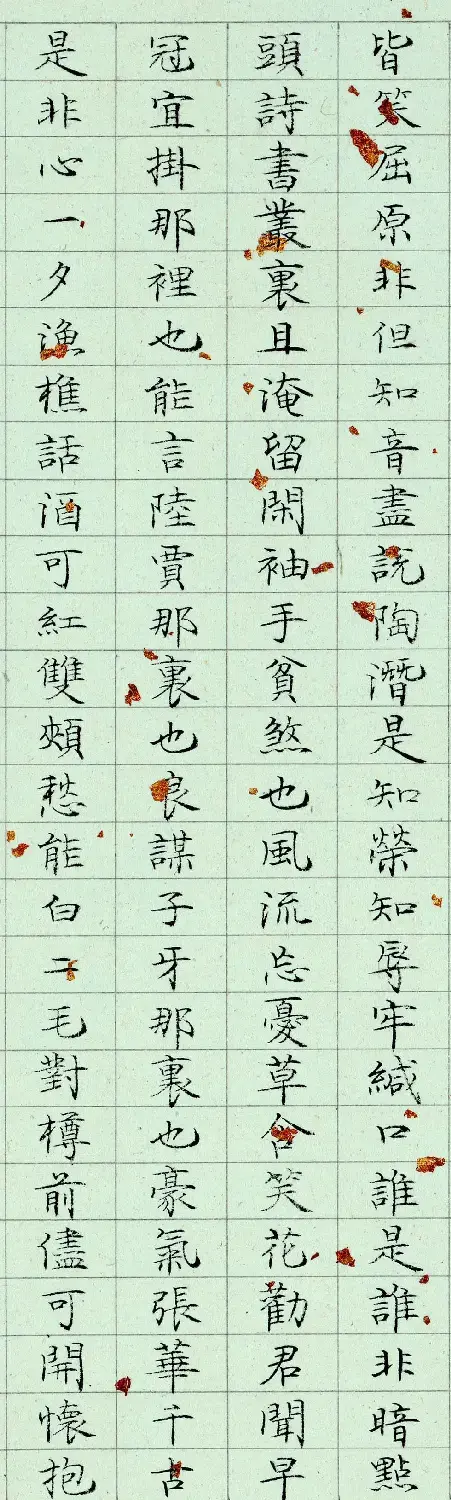 皆笑屈原非但知音盡説陶潛是知榮知辱牢緘口誰是誰非暗點
頭詩書叢裏且淹留閑袖手貧煞也風流忘憂草含笑花勸君聞早
冠宜掛那裡也能言陸賈那裏也良謀子牙那裏也豪氣張華千古
是非心一夕漁樵話酒可紅雙頰愁能白二毛對樽前儘可開懷抱